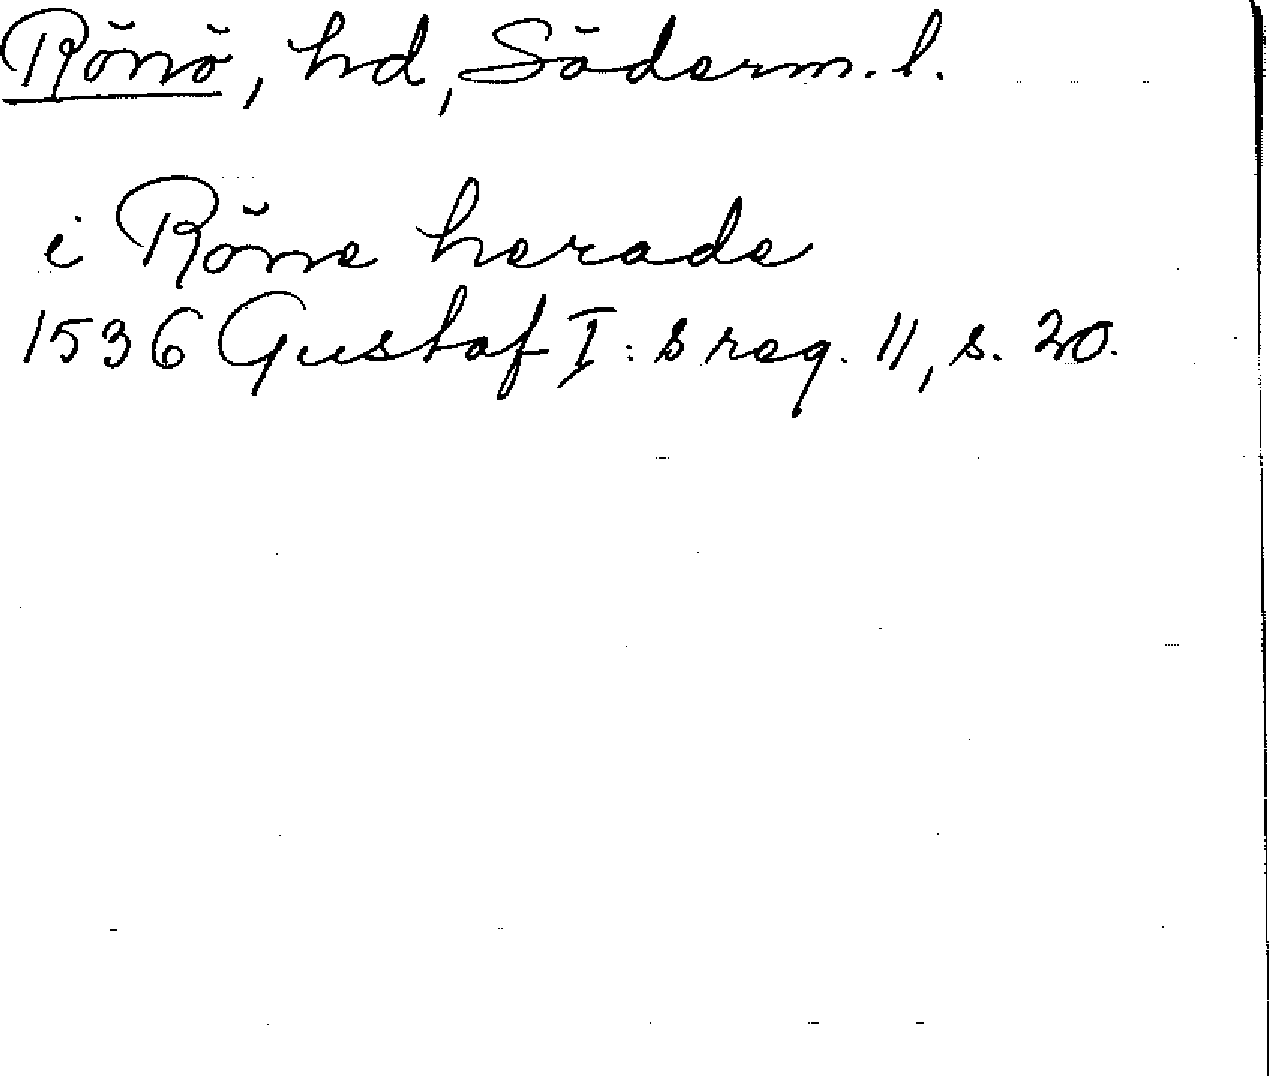 Rönö, hd, Söderm. l.
i Röne herade
1536 Gustaf I:s reg. 11, s. 20.